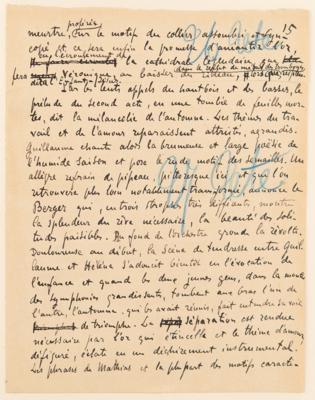 15
proférée
meurtre, sur le motif du collier assombri et syn-
copé et ce sera enfin la promise d'amiante d'or,
la cathédrale légendaire, que
sera Véronique, au baiser du rideau,
Sur de lents appels du hautbois et des basses, le
prélude du second acte, en une tombée de feuilles mor-
tes, dit la mélancolie de l'automne. Les thèmes du tra-
vail et de l'amour reparaissent attristés, agrandis.
Guillaume chante alors la brumeuse et large poésie de
l'humide saison et pose le rude motif des semailles. Un
allègre refrain de pipeau, pittoresque ici et que l'on
retrouvera plus loin notablement transformé, annonce le
Berger qui, en trois strophes très édifiantes, montre
la splendeur du rêve nécessaire, la beauté des soli-
tudes paisibles. Au fond de l'orchestre gronde la révolte.
Douloureuse au début, la scène de tendresse entre Guil-
laume et Hélène s'adoucit bientôt en l'évocation de
l'enfance et quand les deux jeunes gens, dans la montée
des symphonies grandissantes, tombent aux bras l'un de
l'autre, l'automne, qui les avait réunis, fait entendre sa voix
de triomphe. La séparation est rendue
nécessaire par l'or qui étincelle et le thème d'amour,
défiguré, éclate en un déchirement instrumental.
Les phrases de Mathias et la plupart des motifs caracté-